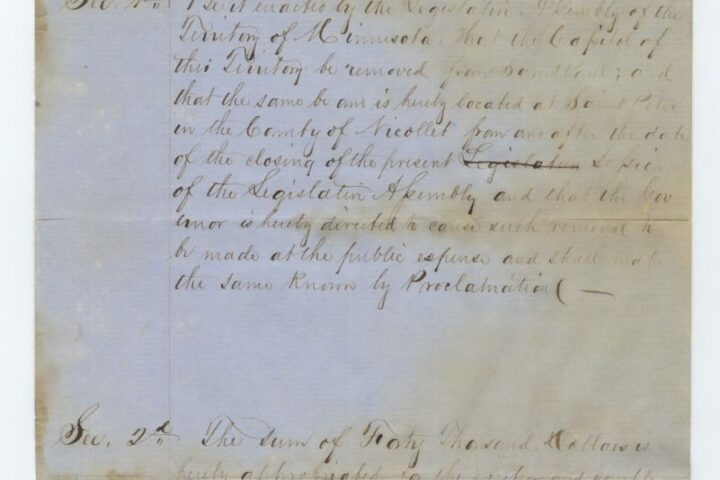 Sec. 1st Be it enacted by the Legislative Assembly of the
Territory of Minnesota That the Capitol of
this Territory be removed from Saint Paul; and
that the same be and is hereby located at Saint Peter
in the County of Nicollet from and after the date
of the closing of the present Legislature Session
of the Legislative Assembly and that the Gov-
ernor is hereby directed to cause such removal to
be made at the public expense and shall make
the same known by Proclamation ( —
Sec. 2d The sum of Forty Thousand Dollars is
hereby appropriated for the